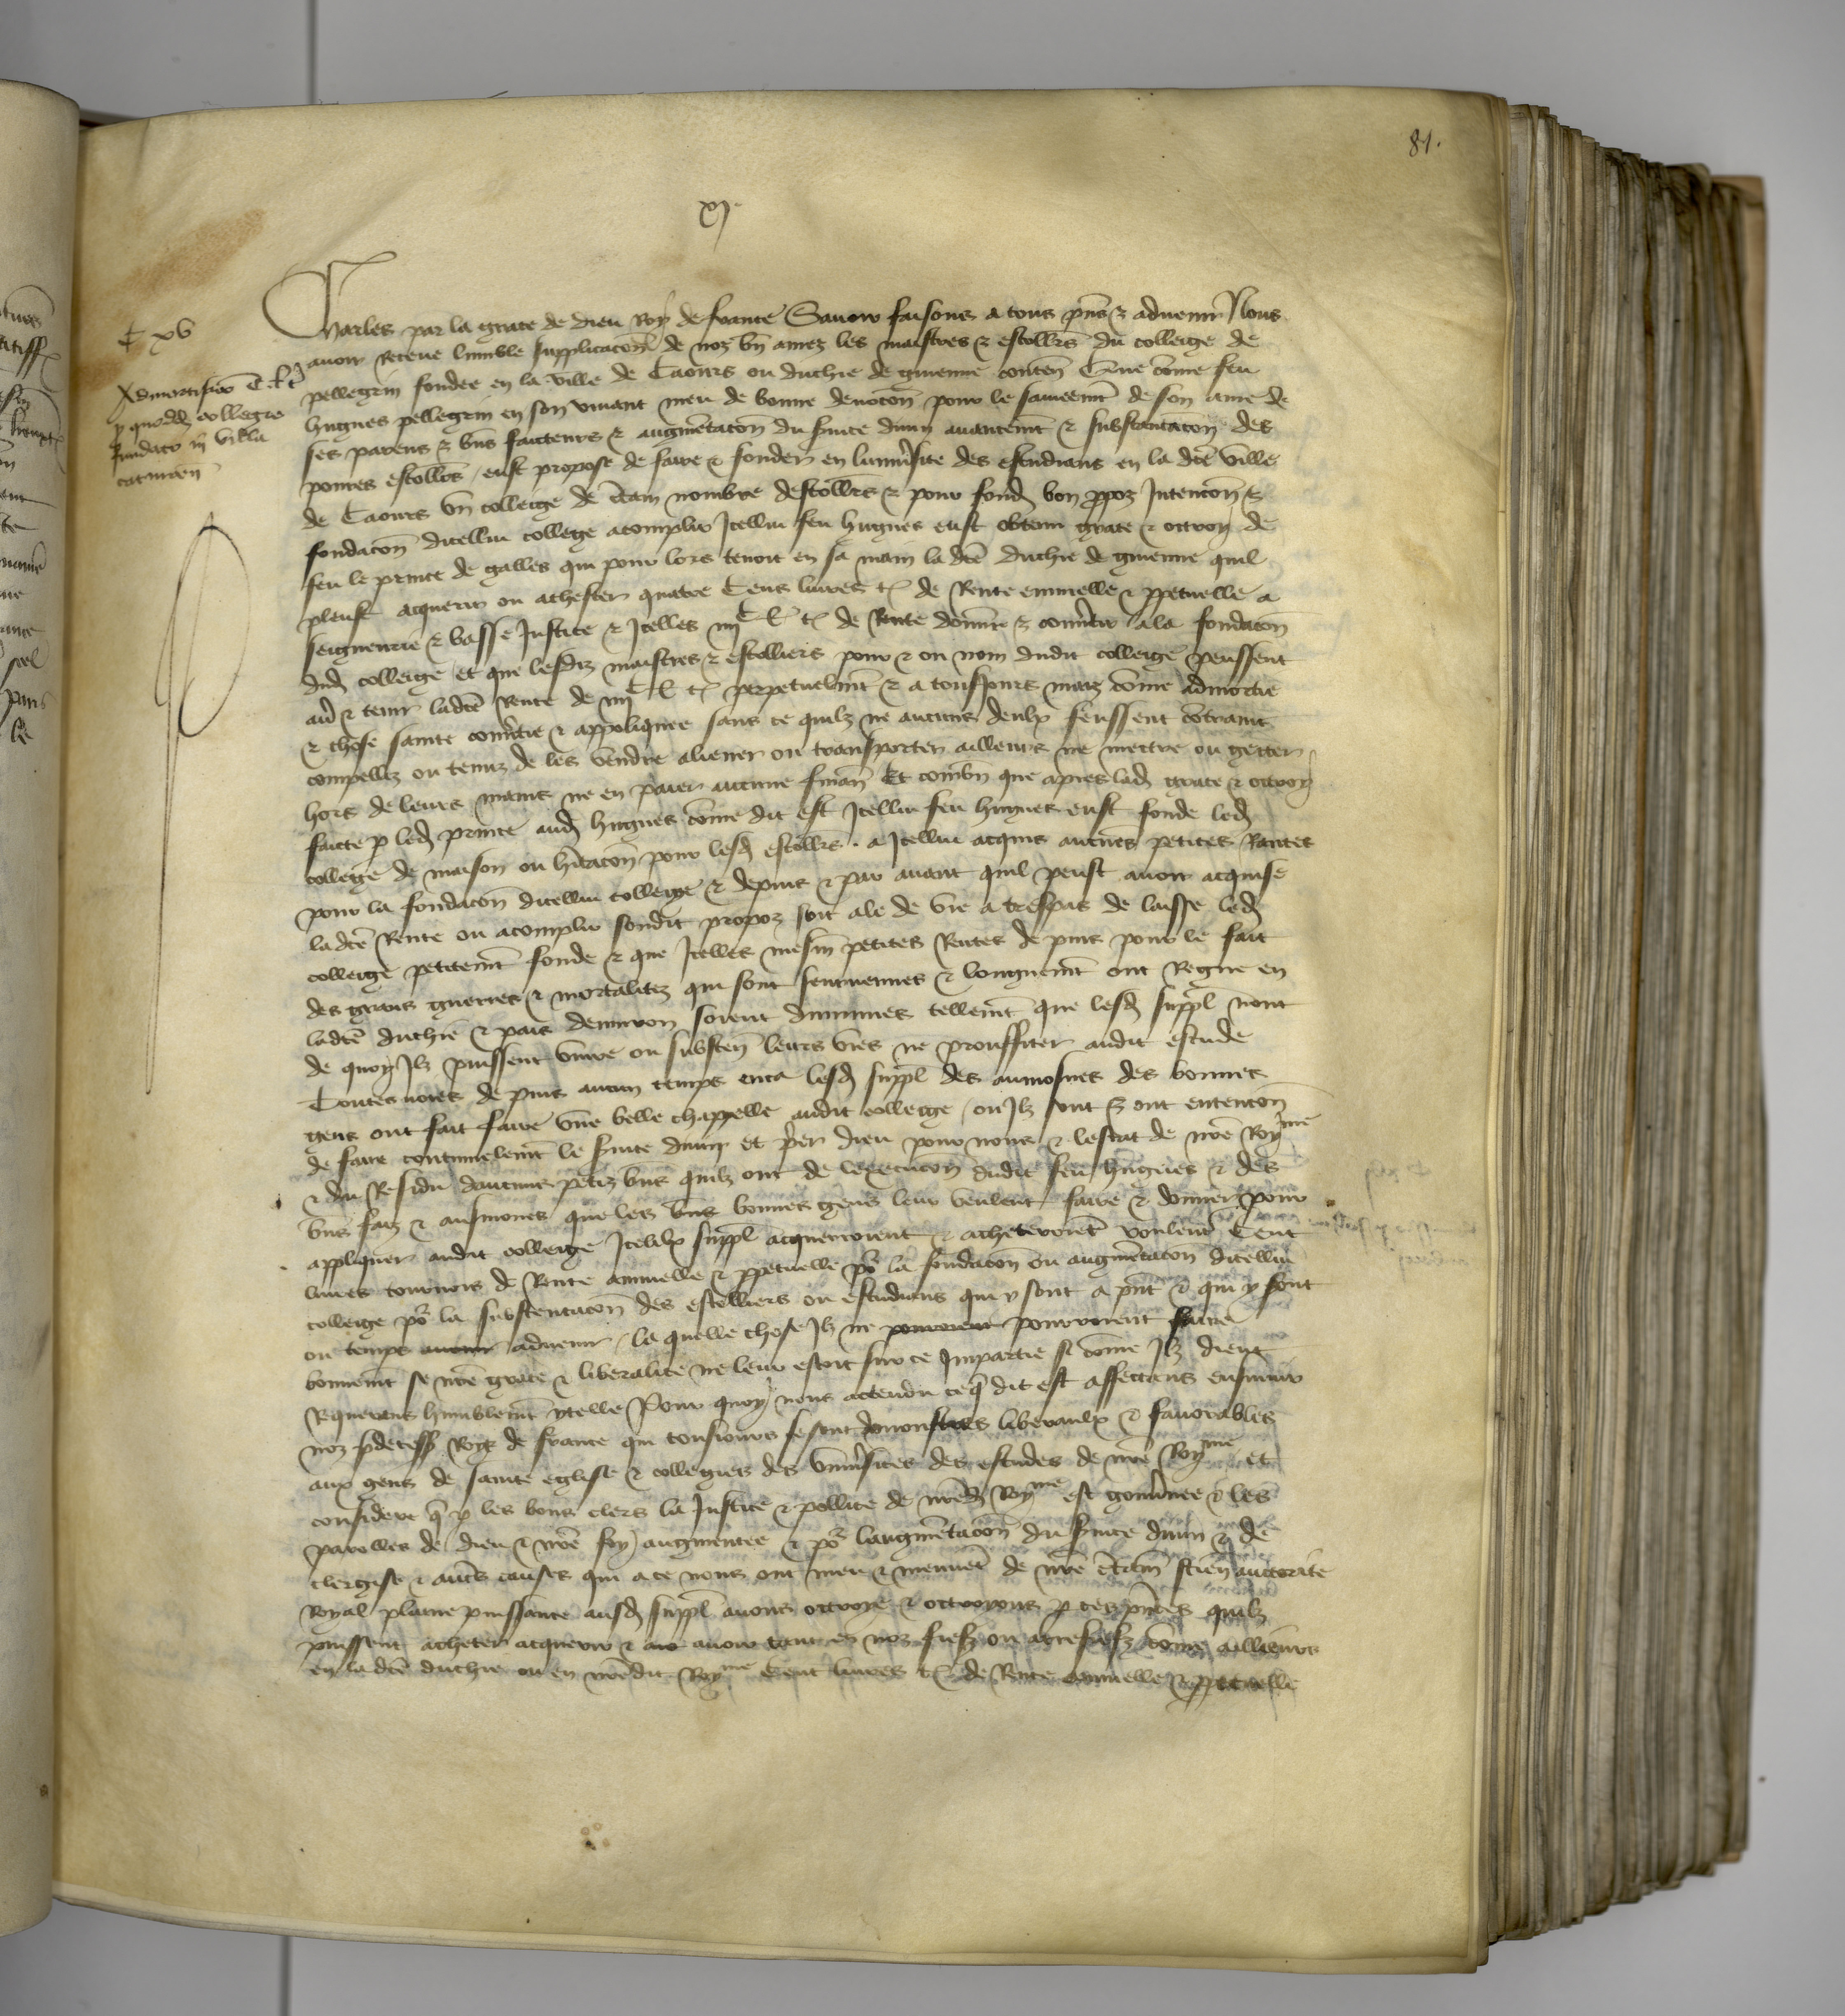 81.
xj.
C xv
Admortisacio C l t
p quodd collegio
fundato in villa
caturcen
Charles par la grace de dieu Roy de france Savoir faisons a tous pns et advenir Nous
avoir Receue lumble supplicacon de noz bn amez les maistres et escolliers du colleige de
pellegrin fondee en la ville de Caours ou duchie de guienne conten Que come feu
hugues pellegrin en son vivant meu de bonne devocon pour le sauvemt de son ame de
ses parens et bns faicteurs et augmetacon du svice divin avancemt et substantacon des
povres escolles eust propose de faire et fonder en luniversite des estudians en la dce ville
de Caours vn colleige de ctain nombre descolliers et pour fond bon ppoz Intencon et
fondacon dicellui college acomplir Icellui feu hugues eust obtenu grace et octroy de
feu le prince de galles qui pour lors tenoit en sa main la dce duchie de guienne quil
peust acquerir ou acheter quatre Cens livres t de Rente ennuelle et ppetuelle a
seigneurie et basse Justice et Icelles iiijC l t de Rente donner et convtir ala fondacon
dud colleige et que lesdiz maistres et escolliers pour et ou nom dudit colleige peussent
av et tenir ladce Rente de iiijC l t perpetuelmt et a tousjours maiz come admortie
et chose sainte convtie et appliquee sans ce quilz ne aucuns deulx feussent cotrains
compellez ou tenuz de les vendre aliener ou transporter ailleurs ne mectre ou getter
hors de leurs mains ne en paier aucune finan Et combn que apres lad grace et octroy
faicte p led prince aud hugues come dit est Icellui feu hugues eust fonde led
colleige de maison ou hitacon pour lesd escolliers a Icellui acquis aucunes petites Rentes
pour la fondacon dicellui colleige et depuis et par avant quil peust avoir acquise
ladce Rente ou acomplir sondit propoz soit ale de vie a trespas delaisse led
colleige petitemt fonde et que Icelles mesm petites Rentes depuis pour le fait
des grans guerres et mortalitez qui sont seurvennes et longuemt ont Regne en
ladce duchie et pais denviron soient diminues tellemt que lesd suppl nont
de quoy Ilz puissent vivre ou substen leurs vies ne prouffiter audit estude
Toutesvoies depuis aucun temps enca lesd suppl des aumosnes des bonnes
gens ont fait faire vne belle chappelle audit colleige ou Ilz font et ont entencon
de faire continuelemt le svice divin et prier dieu pour nous et lestat de nre Royme
et du Residu daucuns petiz bns quilz ont de lexecucon dudit feu hugues et des
bns faiz et ausmones que les bns bonnes gens leur veulent faire et donner pour
appliquer audit colleige Iceulx suppl acquerroient et acheteroiet voulent Cent
livres tournois de Rente annuelle et ppetuelle por la fondacon ou augmetacon dicellui
colleige por la substentacon des escolliers ou estudians qui y sont a pnt et qui y sont
ou temps avenir advenir la quelle chose Ilz ne pourroient pourroient faire
bonnemt se nre grace et liberalite ne leur estoit sur ce Impartie si come Ilz dient
Requerans humblemt ycelle Pour quoy nous actendu ce q dit est affectans ensuivir
noz pdecess Roys de france qui tousiours se sont demonstres liberaulx et favorables
aux gens de sainte eglise et colleiges des universites des estudes de nre Royme et
considere q p les bons clers la Justice et pollice de nred Royme est gouvnee et les
parolles de dieu et nre foy augmentee et por laugmetacon du svice divin et de
clergise et autes causes qui a ce nous ont meu et meuvet de nre ctain scien auctorite
Royal plaine puissance ausd suppl avons octroye et octroyons p ces pntes quilz
puissent acheter acquerir et av avoir tant en noz fiefz ou arrefiefz come ailleurs
en ladce duchie ou en nredit Royme Cent livres t de Rente annuelle et ppetuelle